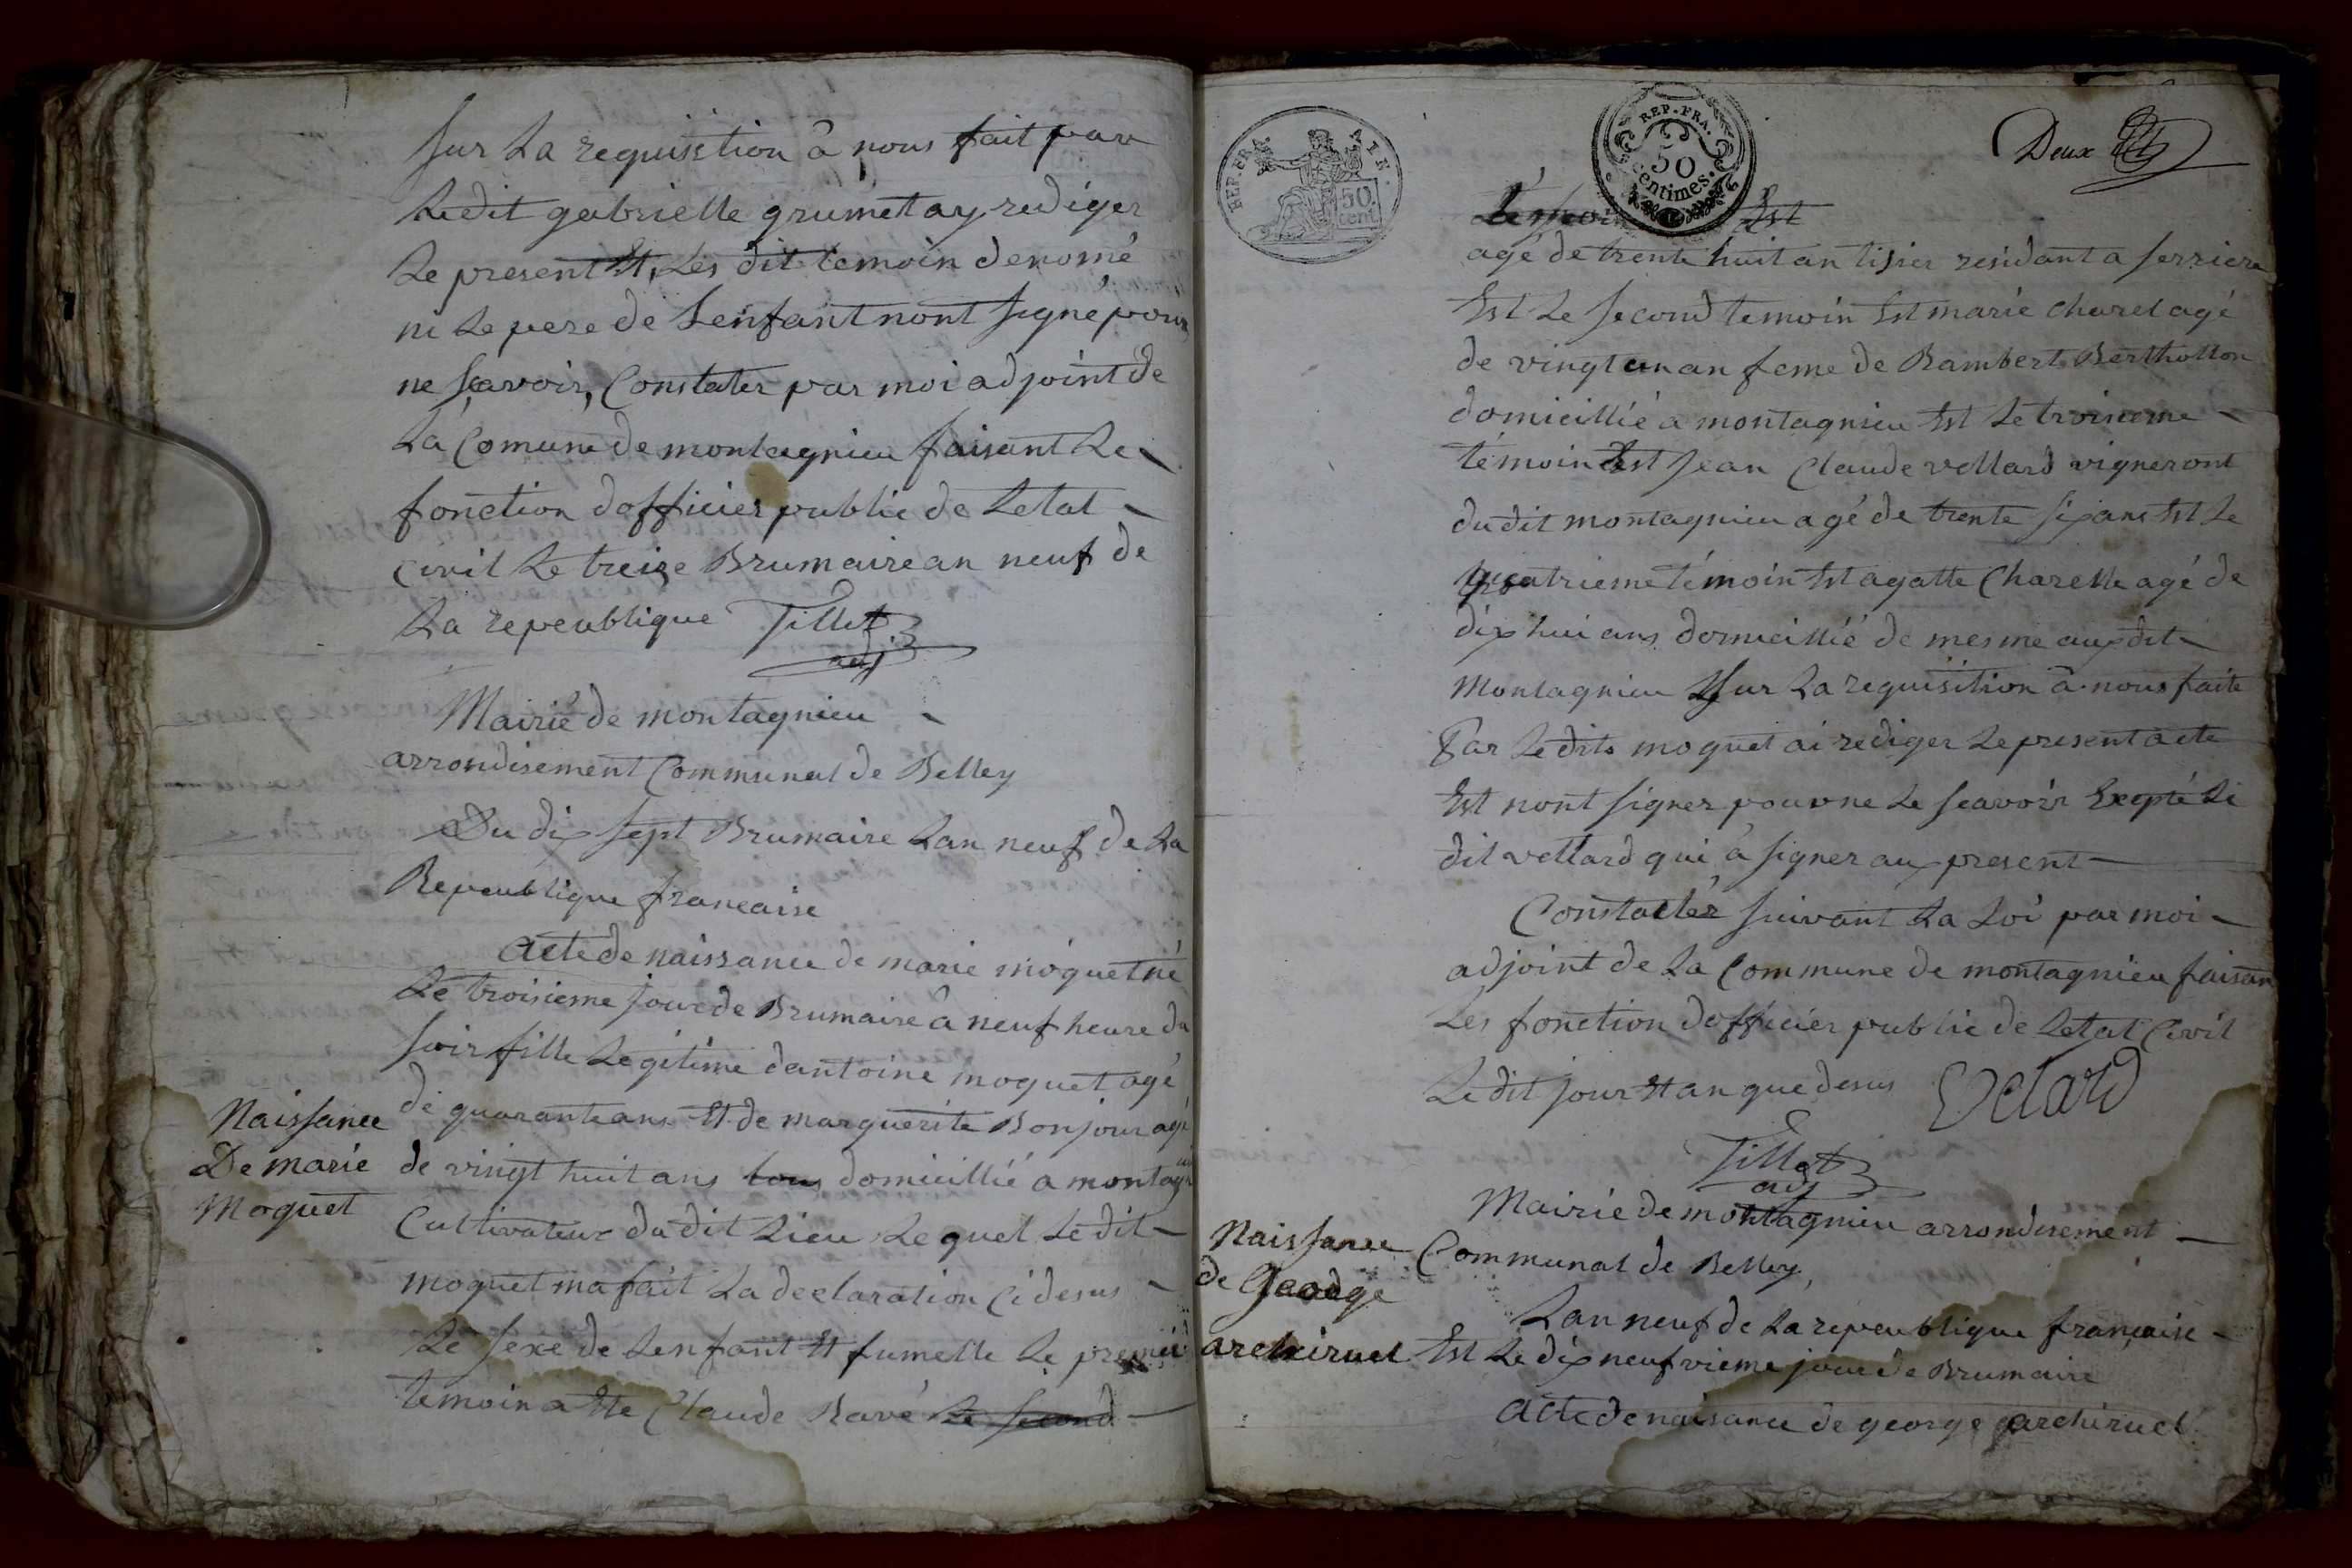 sur La requisition à nous fait par
Ledit gabrielle grumet ay rediger
Le present Et, Les dit temoin denomé
ni Le pere de Lenfant nont signé pour
ne sçavoir, Constater par moi adjoint de
La Comune de montagnieu faisant Le
fonction dofficier public de Letat
Civil Le treise Brumaire an neuf de
La repeublique Tillet
adj
Mairie de montagnieu
arrondisement Communal de Belley
Du dix sept Brumaire Lan neuf de La
Repeublique francaise
acte de naissance de marie moquet né
Le troisieme jour de Brumaire à neuf heure du
soir fille Legitime dantoine moquet agé
de quarante ans Et de marguerite Bonjour agé
Naissance
De marie
Moquet
de vingt huit ans tous domicillié a montagnieu
Cultivateur dudit Lieu Le quel Le dit
moquet ma fait La declaration Ci desus
Le sexe de Lenfant Et fumelle Le premié
temoin a Ete Claude Ravé Le second
REP. FRA.
50
cent.
REP. FRA.
50
centimes.
Deux
Temoin Est
agé de trente huit an tisier residant a serriere
Est Le second temoin Est marie Charel agé
de vingt un an feme de Rambert Bertholon
domicillié a montagnieu Est Le troisieme
temoin Est Jean Claude vellard vigneront
dudit montagnieu agé de trente six ans Est Le
quatrieme témoin Est agatte Charelle agé de
dix hui ans domicillié de mesme aux dit
Montagnieu Sur La requisition à nous faite
Par Le dits moquet ai rediger Le present acte
Est nont signer pour ne Le seavoir Excepté Le
dit vellard qui à signer aux present
Constatér suivant La Loi par moi
adjoint de La Commune de montagnieu faisan
Les fonction dofficier public de Letat Civil
Le dit jour Et an que desus Velard
Tillet
adj
Mairie de montagnieu arrondisement
Communal de Belley
Naissance
de George
archiruel
Lan neuf de La repeublique francaise
Est Le dix neufvieme jour de Brumaire
acte de naisance de george archiruel